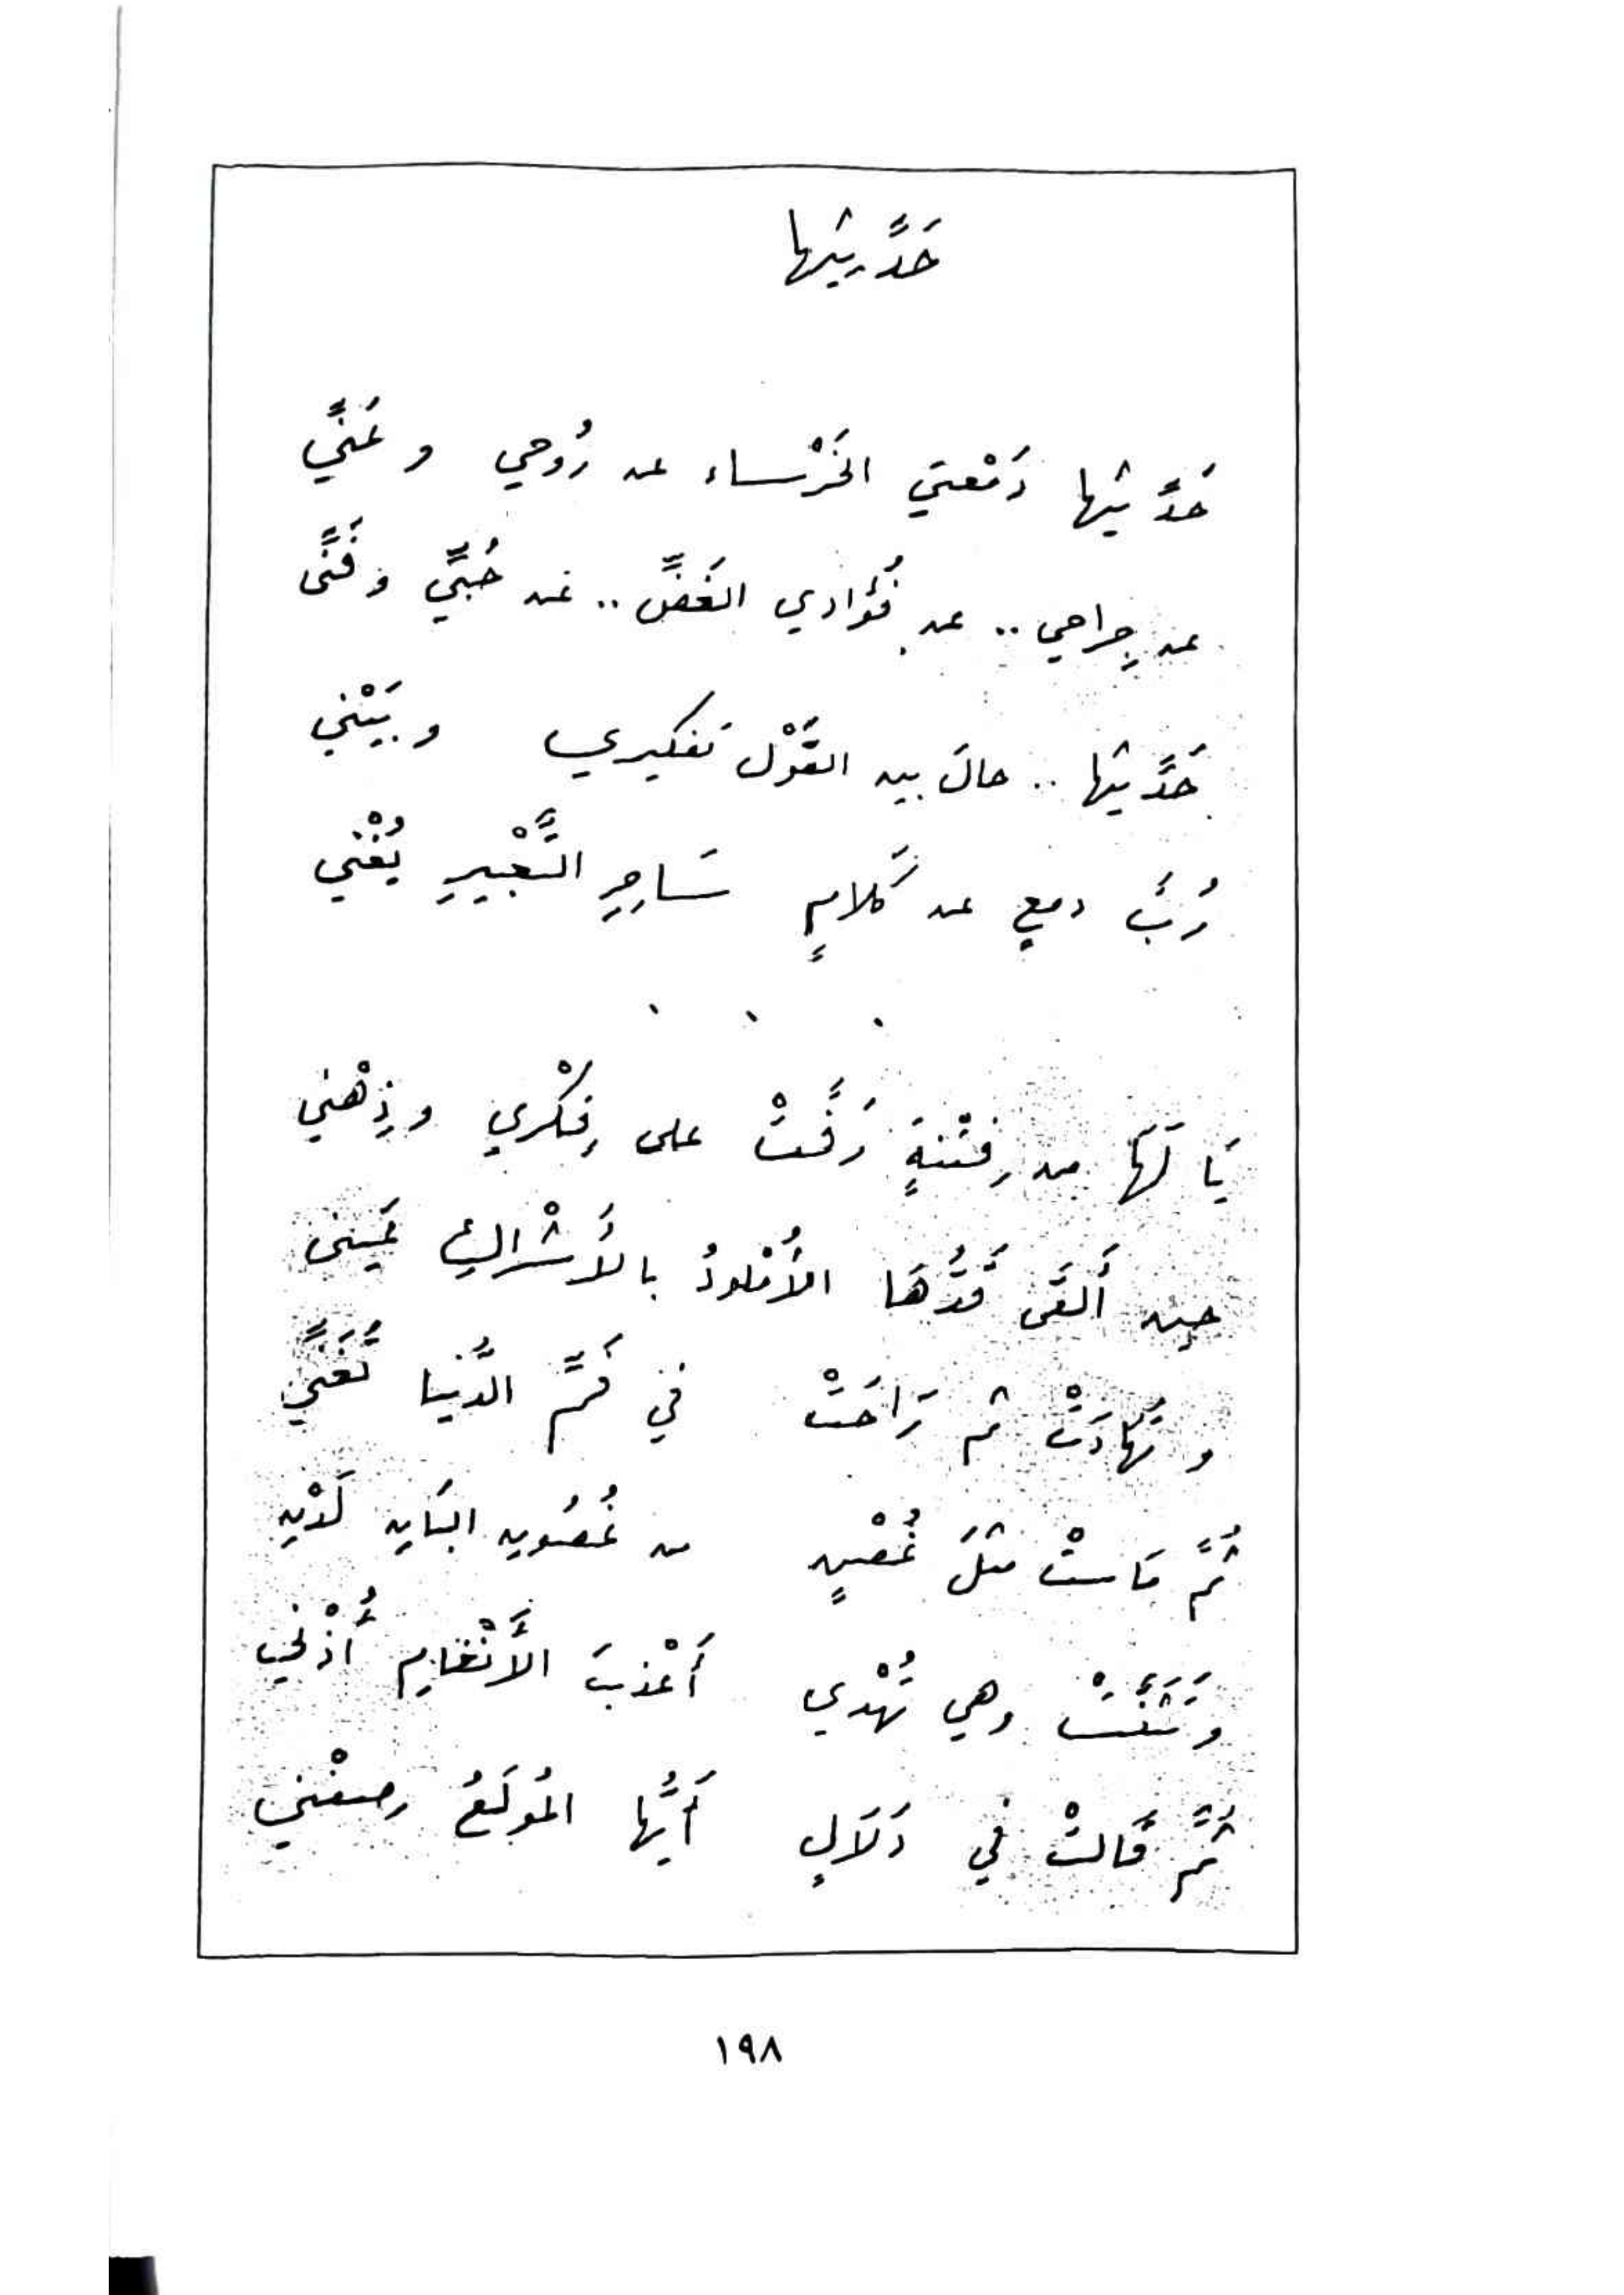 حَدِّثيها
حَدِّثيها دَمْعتي الخَرْساء عن رُوحي وعَنِّي
عن جِراحي .. عن فُؤادي الغَضِّ .. عن حُبِّي وفَنِّى
حَدِّثيها .. حالَ بين القَوْل تَفكيري وبَيْني
رُبَّ دمعٍ عن كَلامٍ سَاحِرِ التَّعْبيرِ يُغْني
. . .
يَا لَهَا من فِتْنةٍ رَفَّتْ على فِكْري وذِهْني
حين أَلقَى قَدُّهَا الأُمْلودُ بالأَشْراكِ
وتَهادَتْ ثم رَاحَتْ في فَمِّ الدُّنيا تُغَنِّي
ثُمَّ مَاستْ مثلَ غُصْنٍ من غُصُونِ البَانِ لَدْنِ
وَتَثَنَّتْ وهي تُهْدي أَعْذبَ الأَنْغامِ أُذْني
ثُمَّ قَالتْ في دَلَالٍ أَيُّها المُولَعُ صِفْني
١٩٨